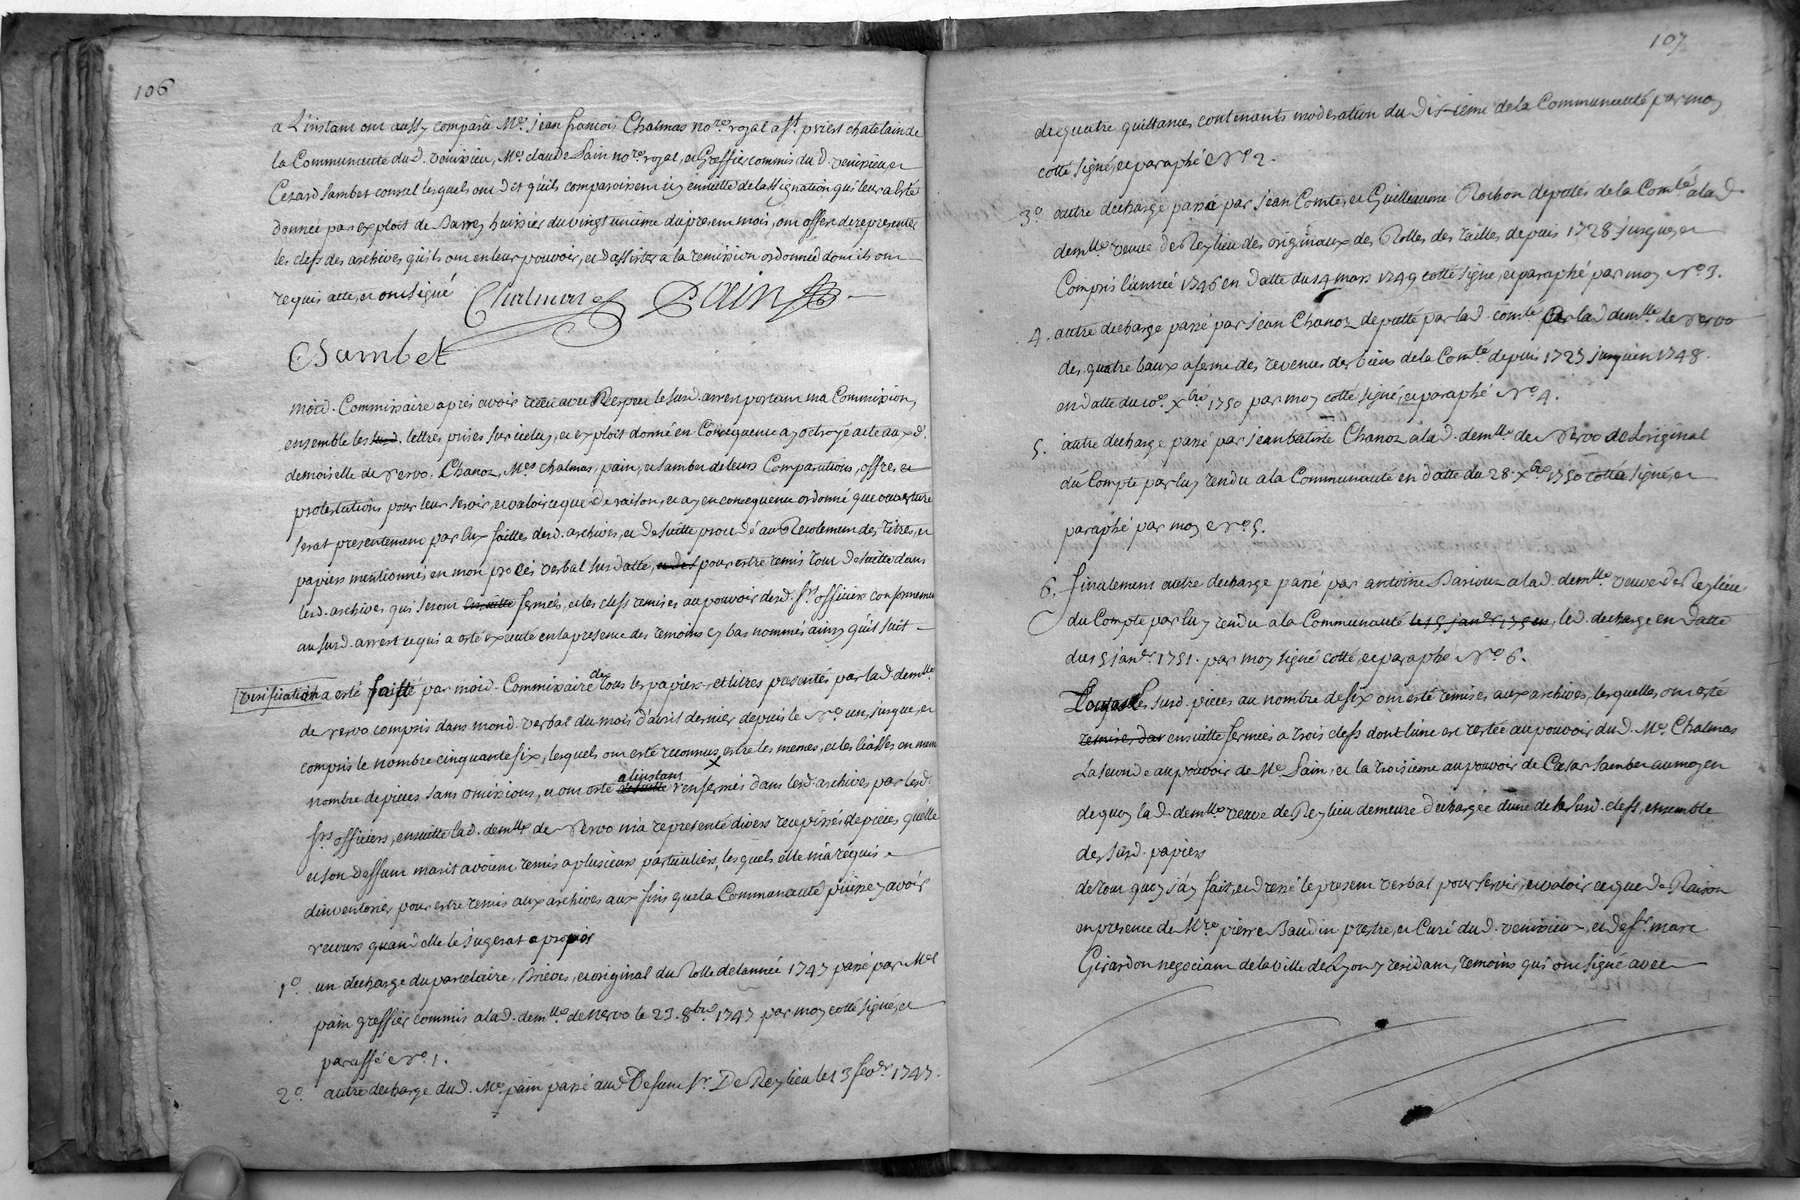 106
a L'instant ont aussy comparû Me. jean francois Chalmas nore. royal asst. pr iest chatelain de
la Communauté dud. venixieu, Me. claude Pain nore. royal, et Greffier commis dud. venixieu, et
Cezard Sambet consul lesquels ont dit qu'ils comparoissent icy ensuitte de l'assignation qui leur a esté
donnée par exploit de Barrey huissier du vingt unieme du present mois, ont offert de representer
les clefs des archives qu'ils ont en leur pouvoir, et d'assister a la remission ordonnée dont ils ont
requis acte, et ont signé Chalmas Pain
C Sambet
moÿd. Commissaire apres avoir receu avec Respect le susd. arrest portant ma Commission,
ensemble les susd. lettres prises sur iceluy, et exploit donné en Consequence ay octroyé acte aux d.
demoiselle de Nervo, Chanoz, Mes. chalmas, pain, et sambet de leurs Comparutions, offres, et
protestations pour leur servir, et valoir ce que de raison, et ay en consequence ordonné que ouverture
serat presentement par eux faitte desd. archives, et de suitte procedé au Recolement des Titres, et
papiers mentionnés en mon procés verbal sus datté, et des pour estre remis tout de suitte dans
lesd. archives qui seront ensuitte fermés, et les clefs remises au pouvoir desd. srs. officiers conformement
au susd. arrest ce qui a esté executé en la presence des temoins cy bas nommés ainsy qu'il suit
verification a esté faitte par moÿd. Commissaire de tous les papiers, et titres presentés par lad. demlle.
de Nervo compris dans mond. verbal du mois d'avril dernier depuis le No. un, jusque, et
compris le nombre cinquante six, lesquels ont esté reconnus estre les memes, et les liasses en meme
nombre de pieces sans omissions, et ont esté de suitte a linstant renfermés dans lesd. archives par lesd.
srs. officiers, ensuitte lad. demlle. de Nervo m'a representé divers recepissés de pieces qu'elle
et son deffunt marit avoient remis a plusieurs particuliers, lesquels elle m'a requis
d'inventorier pour estre remis aux archives aux fins que la Communauté puisse y avoir
recours quand elle le jugerat a propos
1o. un decharge du parcelaire, Brieves, et original du Rolle de lannée 1747 passé par Me.
pain greffier commis a lad. demlle. de Nervo le 23. 8bre. 1747 par moy cotté signé, et
paraffé No. 1.
2o. autre decharge dud. Me. pain passé aud. Defunt Sr. De Reylieu le 13 fevr. 1747.
107
de quatre quittances contenants moderation du Dixieme de la Communauté par moy
cotté signé, et paraphé No. 2.
3o. autre decharge passé par jean Comte, et Guilleaume Rochon deputés de la Comté. a lad.
demlle. veuve de Reylieu des originaux des Rolles des tailles depuis 1728 jusques, et
Compris l'année 1746 en datte du 14 mars 1749 cotté signé, et paraphé par moy No. 3.
4. autre decharge passé par jean Chanoz deputté par lad. comté. par lad demlle. de Nervo
des quatre baux a ferme des revenues des biens de la Comté. depuis 1723 jusqu'en 1748.
en datte du 10e. Xbre. 1750 par moy cotté signé, et paraphé No. 4.
5. autre decharge passé par jean batiste Chanoz a lad. demlle. de Nervo de l'original
du Compte par luy rendu a la Communauté en datte du 28. Xbre. 1750 cotté signé, et
paraphé par moy No. 5.
6. finalement autre decharge passé par antoine Barioux a lad. demlle. veuve de Reylieu
du Compte par luy rendu a la Communauté le 15 janr. 1751, led. decharge en datte
du 15 janr. 1751. par moy signé cotté, et paraphé No. 6.
Les susd. pieces au nombre de six ont esté remises aux archives, lesquelles ont esté
remises dar ensuitte fermées a trois clefs dont l'une est restée au pouvoir dud. Me. Chalmas
La seconde au pouvoir de Me. Pain, et la troisieme au pouvoir de Cæsar Sambet au moyen
de quoy lad. demlle. veuve de Reylieu demeure dechargée d'une de la susd. clefs, ensemble
des susd. papiers
de tout quoy j'ay fait, et dressé le present verbal pour servir, et valoir ce que de Raison
en presence de Mre. pierre Baudin prestre, et Curé dud. venixieux, et de sr. marc
Girardon negociant de la ville de Lyon y residant, temoins qui ont signé avec